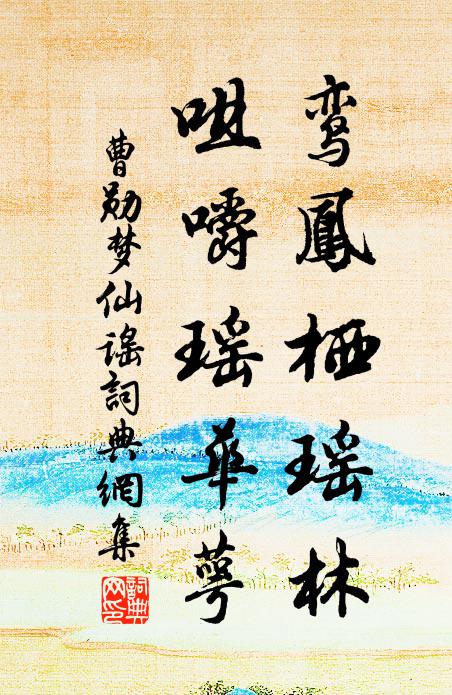 鸾鳳栖瑶林
咀嚼瑶華萼
曹勛梦仙謠詞典網集
詞典网印